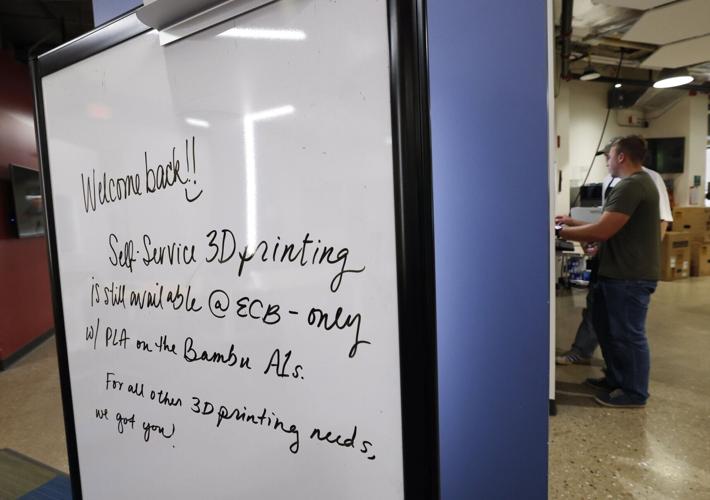 Welcome back!!
Self-Service 3D printing
is still available @ ECB - only
w/ PLA on the Bambu A1s.
For all other 3D printing needs,
we got you!